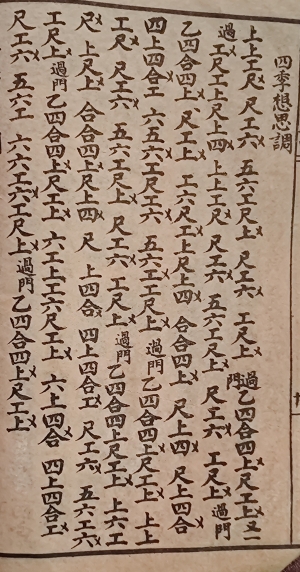 四季想思調
上上工尺 尺工六 五六工尺上 尺工六 工尺上 過門乙四合四上尺工上 又一
過 工尺工上尺上四 上上工尺 尺工六 五六工尺上 尺工六 工尺上 過門
乙四合四上 尺工上 工六尺工上尺上四 合合四上 尺上四 尺上四合
四上四合工 六五六工尺工六 五六工工尺上 過門乙四合四上尺工上 上上
工尺 尺工六 五六工尺上 尺工六 工尺上 過門乙四合四上尺工上 上六工
尺 上尺上 合合四上尺上四 尺 上四合 四上四合工 尺工六 五六工六
工尺上 過門乙四合四上尺工上 六工上工六尺工上 六上四合 四上四合工
尺工六 五六工 六六工六工尺上 過門乙四合四上尺工上